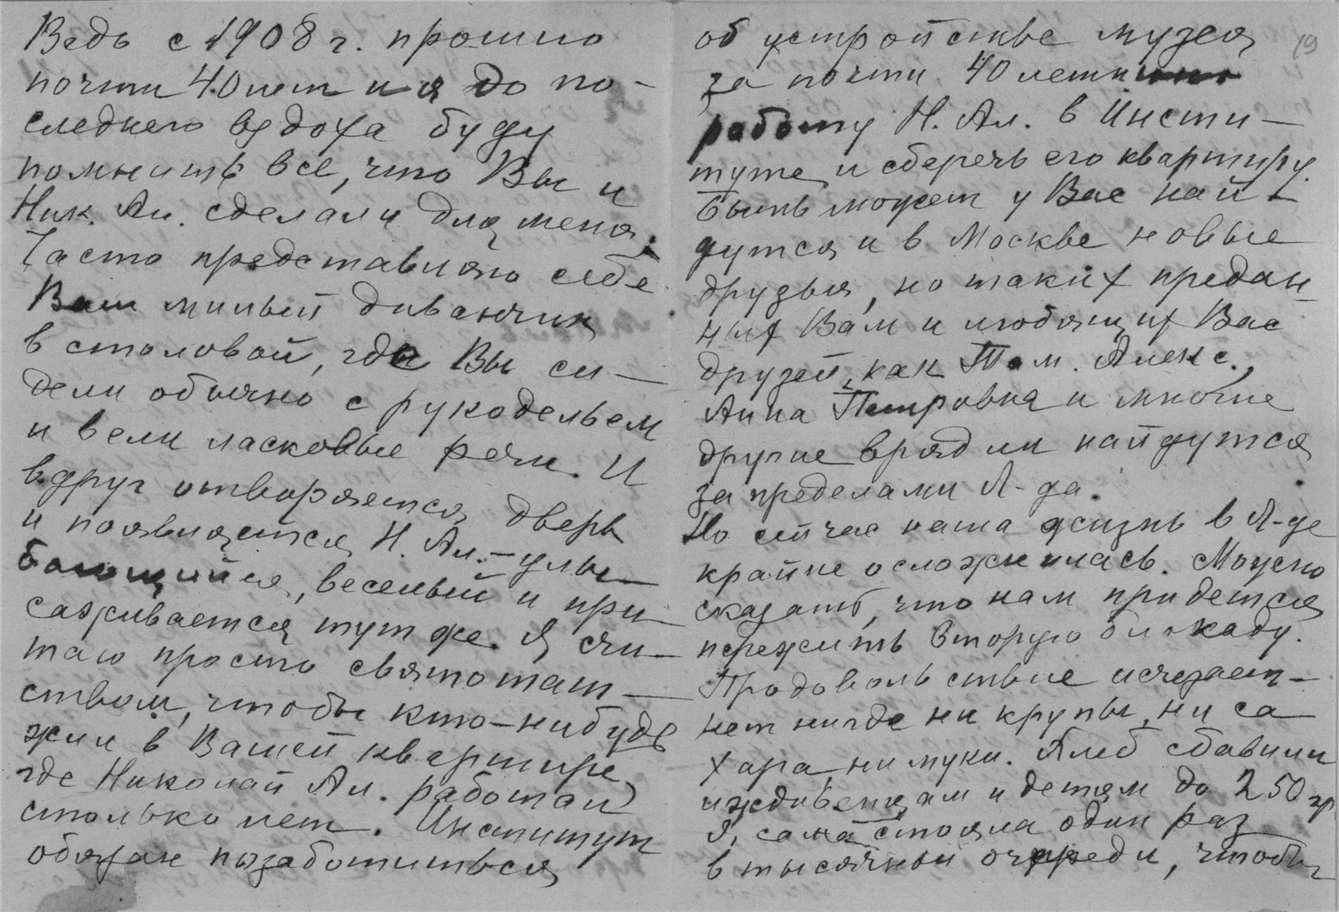 Ведь с 1908 г. прошло
почти 40 лет и я до по-
следнего вздоха буду
помнить все, что Вы и
Ник. Ал. сделали для меня.
Часто представляю себе
Ваш милый диванчик
в столовой, где Вы си-
дели обычно с рукодельем
и вели ласковые речи. И
вдруг отворяется дверь
и появляется Н. Ал. – улы-
бающийся, веселый и при-
саживается тут же. Я счи-
таю просто святотат-
ством, чтобы кто-нибудь
жил в Вашей квартире,
где Николай Ал. работал
столько лет. Институт
обязан позаботиться
19
об устройстве музея
за почти 40 летн
работу Н. Ал. в Инсти-
туте и сберечь его квартиру.
Быть может у Вас най-
дутся и в Москве новые
друзья, но таких предан-
ных Вам и любящих Вас
друзей, как Там. Алекс.,
Анна Петровна и многие
другие вряд ли найдутся
за пределами Л-да.
Но сейчас наша жизнь в Л-де
крайне осложнилась. Можно
сказать, что нам придется
пережить вторую блокаду.
Продовольствие исчезает –
нет нигде ни крупы, ни са-
хара, ни муки. Хлеб сбавили
иждивенцам и детям до 250 гр
Я сама стояла один раз
в тысячной очереди, чтобы